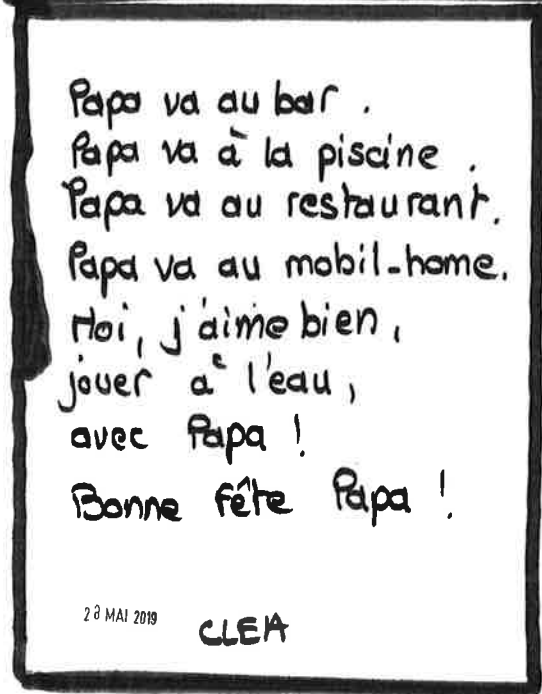 Papa va au bar.
Papa va à la piscine.
Papa va au restaurant.
Papa va au mobil-home.
Moi, j'aime bien,
jouer à l'eau,
avec Papa !
Bonne fête Papa !
MAI 2019
CLEA